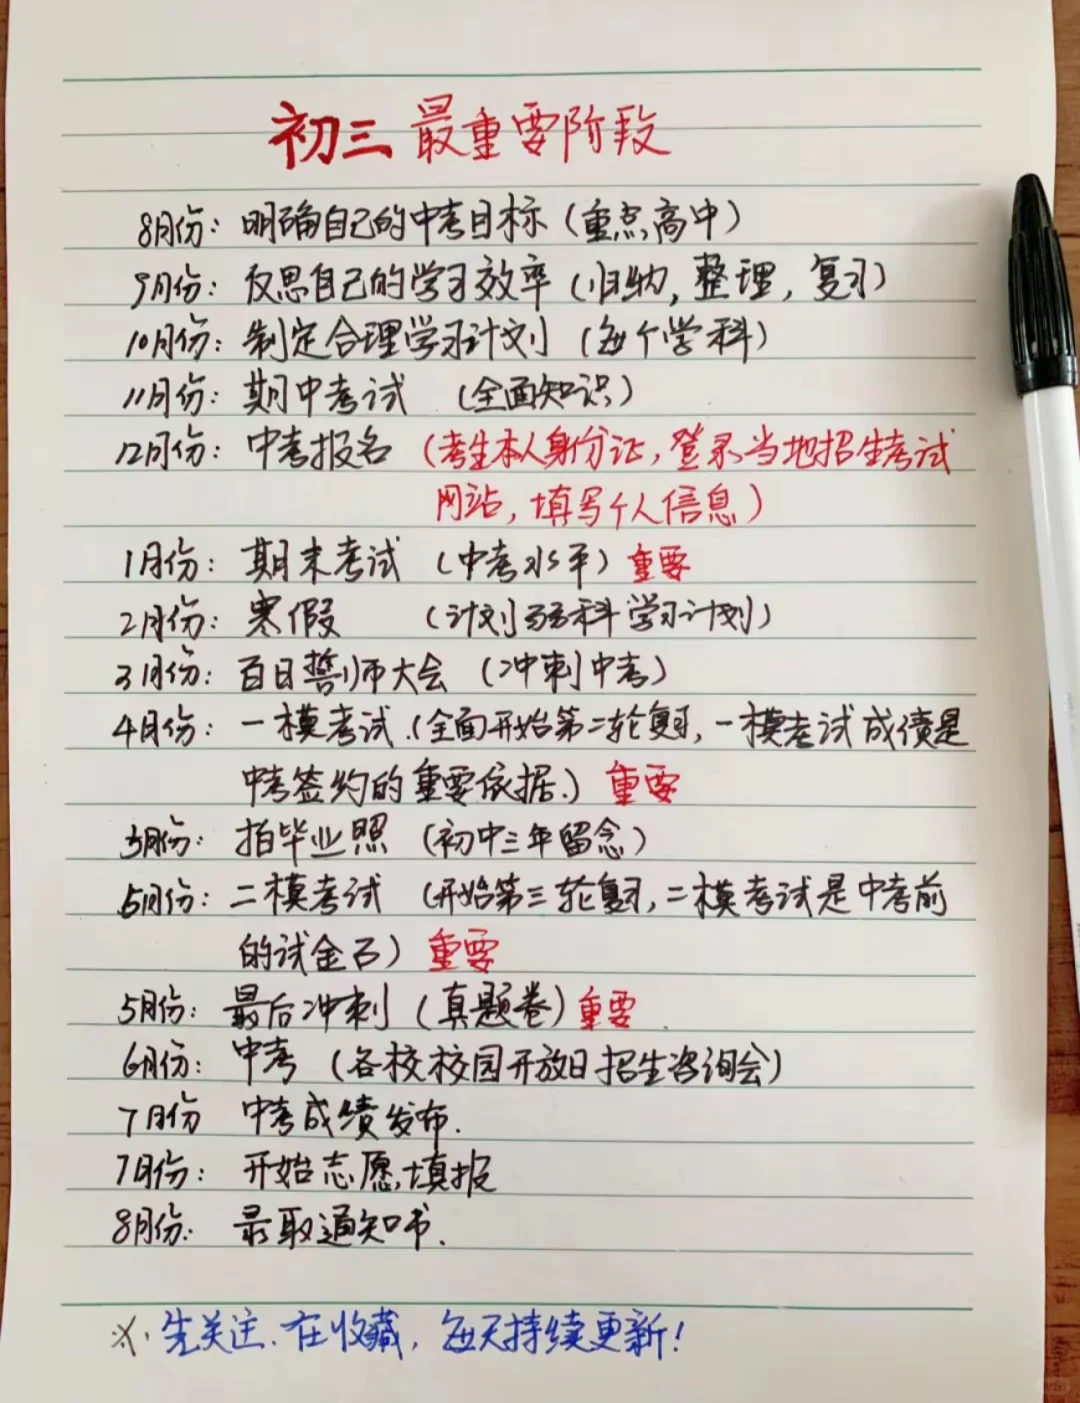 初三最重要阶段
8月份：明确自己的中考目标（重点高中）
9月份：反思自己的学习效率（归纳，整理，复习）
10月份：制定合理学习计划（每个学科）
11月份：期中考试（全面知识）
12月份：中考报名（考生本人身份证，登录当地招生考试
网站，填写个人信息）
1月份：期末考试（中考水平）重要
2月份：寒假（计划弱科学习计划）
3月份：百日誓师大会（冲刺中考）
4月份：一模考试.（全面开始第二轮复习，一模考试成绩是
中考签约的重要依据.）重要
5月份：拍毕业照（初中三年留念）
5月份：二模考试（开始第三轮复习，二模考试是中考前
的试金石）重要
5月份：最后冲刺（真题卷）重要
6月份：中考（各校校园开放日招生咨询会）
7月份 中考成绩发布.
7月份：开始志愿填报
8月份：录取通知书.
※.先关注.在收藏，每天持续更新！